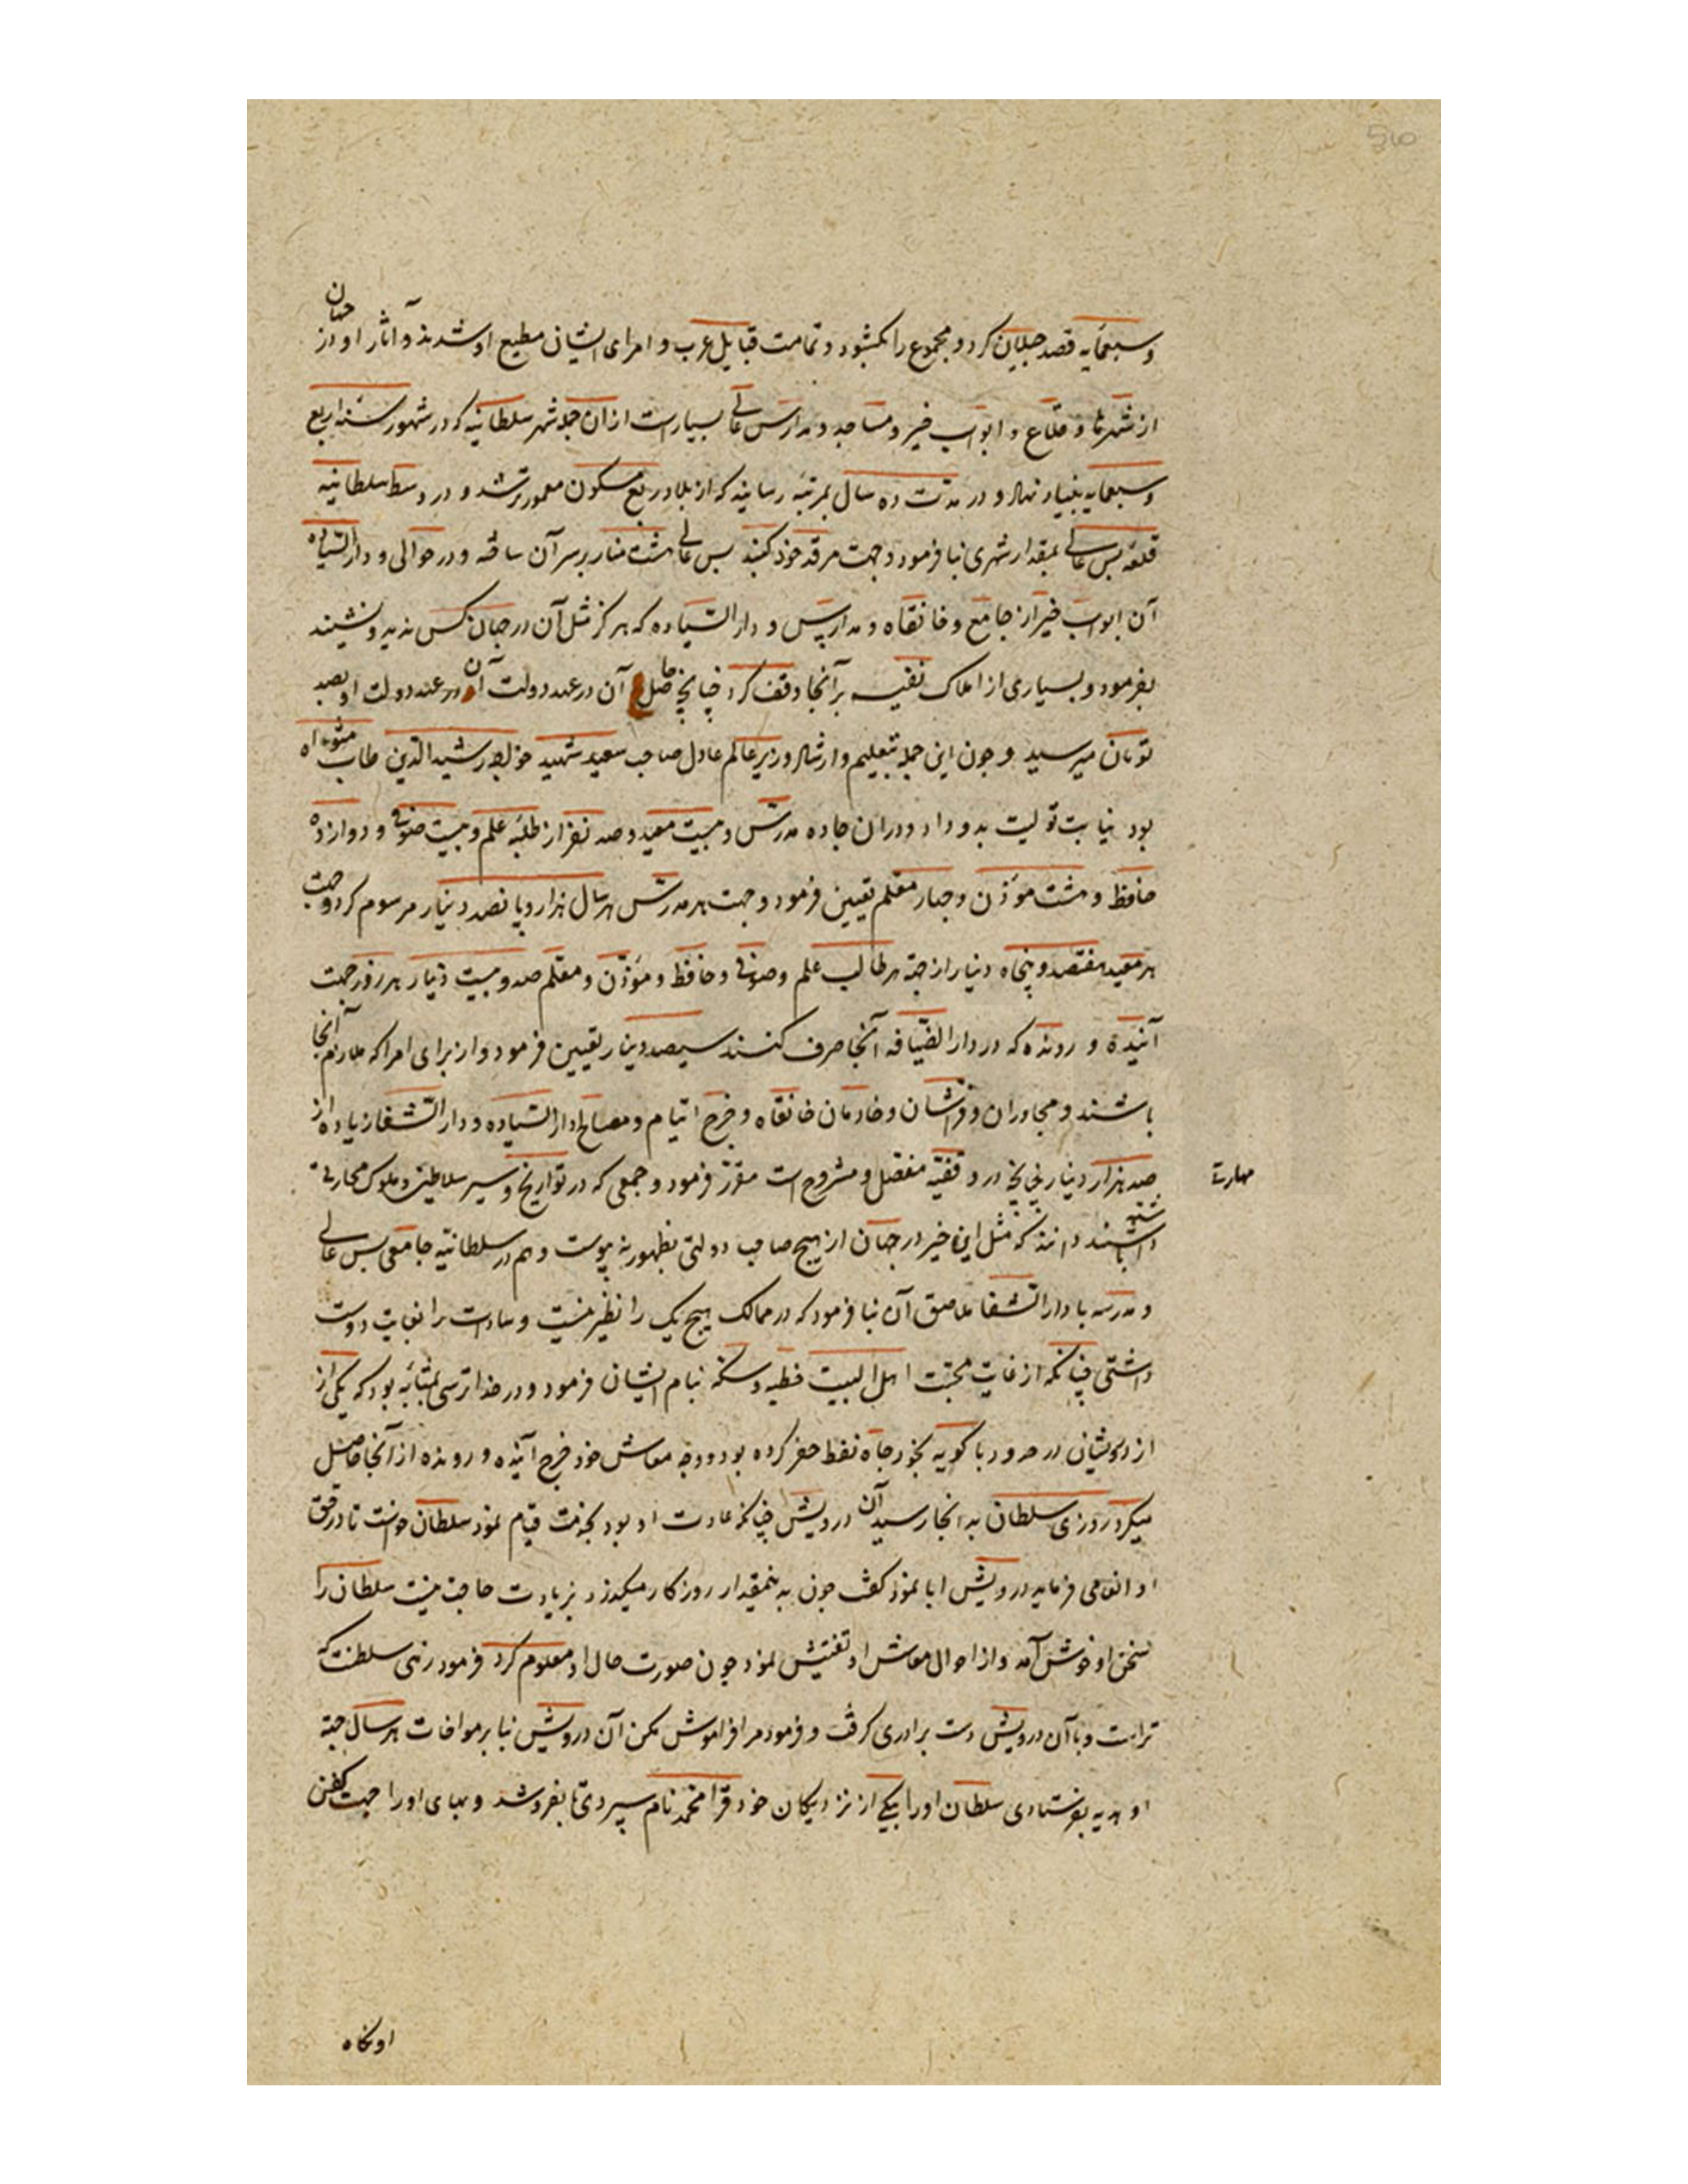 وسبعمایه قصد جیلان کرد و مجموع را بکشود و تمامت قبایل عرب و امرای ایشان مطیع او شدند و آثار او در جهان
از شهرها و قلاع و ابواب خیر و مساجد و مدارس عالی بسیارست از ان جمله شهر سلطانیه که در شهور سنه اربع
وسبعمایه بنیاد نهاد و در مدت ده سال بمرتبه رسانید که از بلاد ربع مسکون معمورتر شد و در وسط سلطانیه
قلعه بس عالی بمقدار شهری بنا فرمود و جهت مرقد خود کنبد بس عالی هشت منار بر سر آن ساخته و در حوالی و دار السیاده
آن ابواب خیر از جامع و خانقاه و مدارس و دار السیاده که هرکز مثل آن در جهان کس ندید و نشنید
بفرمود و بسیاری از املاک نفیسه بر آنجا وقف کرد چنانچه حاصل آن در عهد دولت آن در عهد دولت او بصد
تومان میرسید و چون این جمله بتعلیم و ارشاد وزیر عالم عادل صاحب سعید شهید خواجه رشید الدین طاب مثواه
بود نیابت تولیت بدو داد و دران جا ده مدرس و بیست معید و صد نفر از طلبه علم و بیست صوفی و دوازده
حافظ و هشت موذن و چهار معلم تعیین فرمود و جهت هر مدرس هر سال هزار و پانصد دینار مرسوم کرد و جهت
هر معید هفتصد و پنجاه دینار از جهة هر طالب علم و صوفی و حافظ و موذن و معلم صد و بیست دینار هر روز جهت
آینده و رونده که در دار الضیافه آنجا صرف کنند سیصد دینار تعیین فرمود و از برای امرا که ملازم آنجا
باشند و مجاوران و فراشان و خادمان خانقاه و خرج ایتام و مصالح دار السیاده و دار الشفا زیاده از
صد هزار دینار در وقفیه مفصل و مشروح است مقرر فرمود و جمعی که در تواریخ و سیر سلاطین و ملوک مهارتی
مهارت
داشته باشند دانند که مثل این خیر در جهان از هیچ صاحب دولتی بظهور نه پیوست و هم در سلطانیه جامعی بس عالی
و مدرسه با دار الشفا ملاصق آن بنا فرمود که در ممالک هیچ یک را نظیر نیست و سادات را بغایت دوست
داشتی چنانکه از غایت محبت اهل البیت خطبه و سکه بنام ایشان فرمود و در خدا ترسی بمثابه بود که یکی از
از درویشان در حدود باکویه بخود چاه نفط حفر کرده بود و وجه معاش خود خرج آینده و رونده از آنجا حاصل
میکرد روزی سلطان به انجا رسید آن درویش چنانکه عادت او بود بخدمت قیام نمود سلطان خواست تا در حق
او انعامی فرماید درویش ابا نمود کفت چون به نیمقدار روزکار میکذرد بزیادت حاجت نیست سلطان را
سخن او خوش آمد و از احوال معاش او تفتیش نمود چون صورت حال او معلوم کرد فرمود زهی سلطنت که
تراست و با آن درویش دست برادری کرفت و فرمود مرا فراموش مکن آن درویش بنا بر مواخات هر سال جبه
او هدیه بفرستادی سلطان او را بیکی از نزدیکان خود قرا محمد نام سپردی تا بفروشد و بهای او را جهت کفن
او نکاه